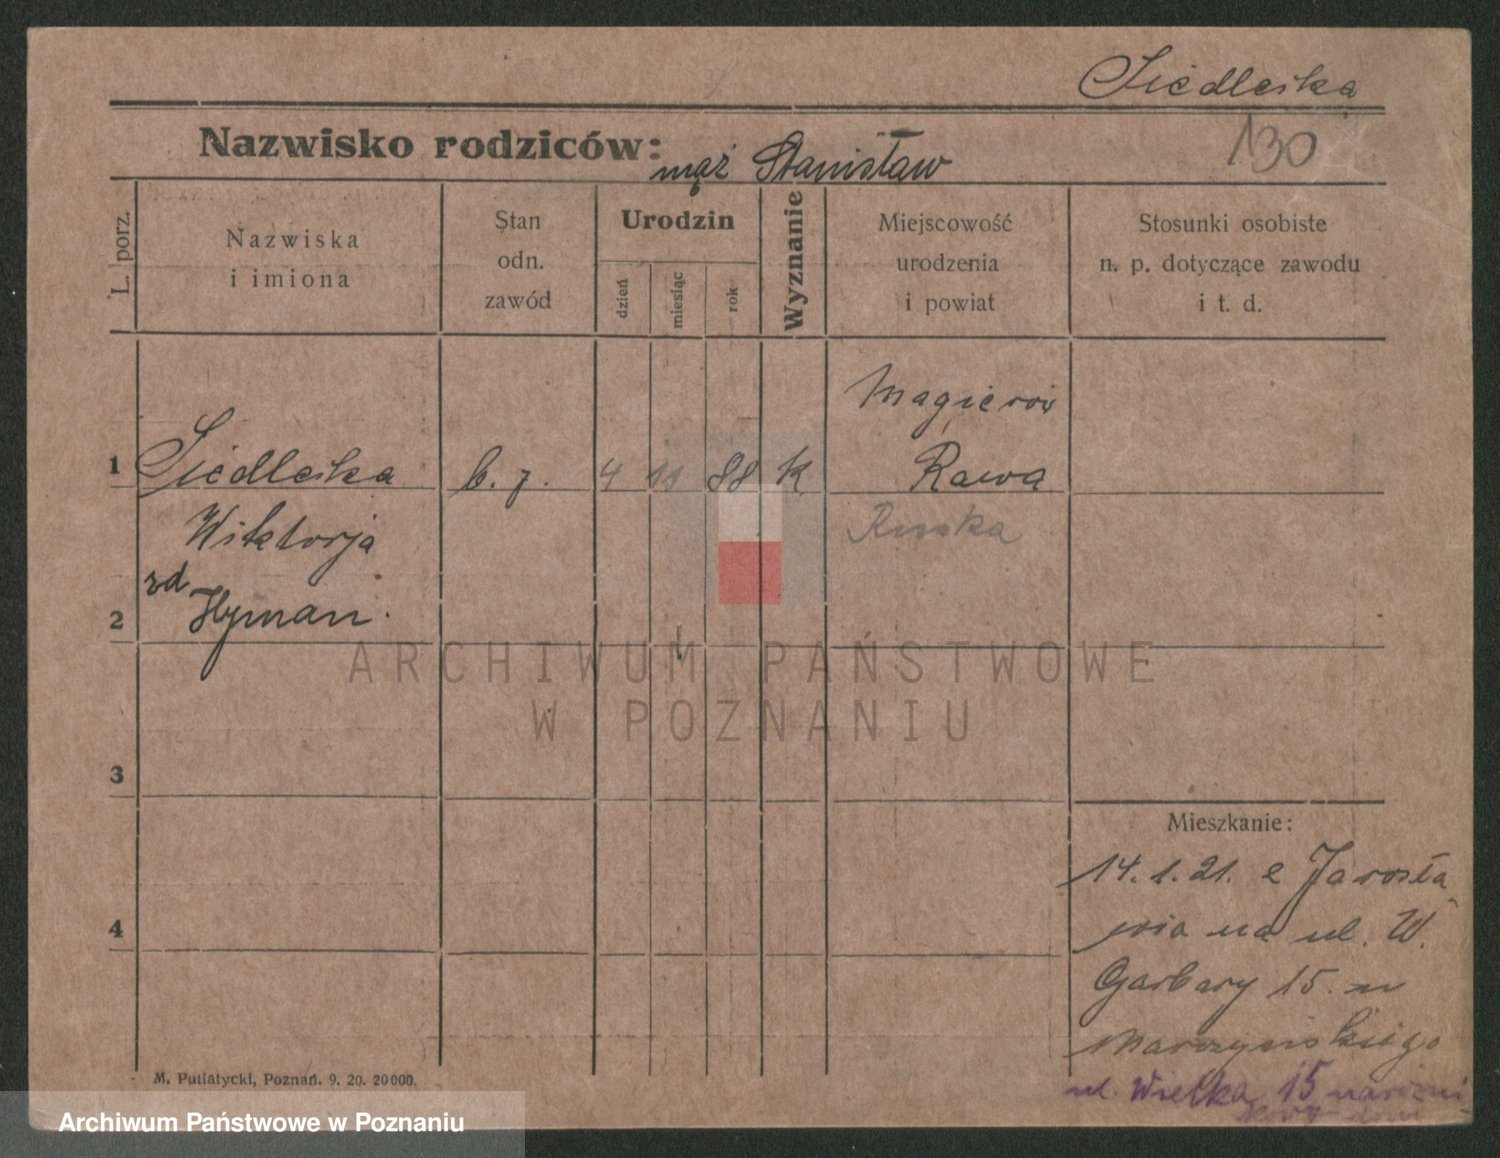 Siedlecka
130
Nazwisko rodziców: mąż Stanisław
L. porz.
Nazwiska
i imiona
Stan
odn.
zawód
Urodzin
dzień
miesiąc
rok
Wyznanie
Miejscowość
urodzenia
i powiat
Stosunki osobiste
n. p. dotyczące zawodu
i t. d.
Magierów
1 Siedlecka b. z. 4 11 88 k Rawa
Wiktorja Ruska
zd
2 Hyman.
ARCHIWUM PAŃSTWOWE
W POZNANIU
3
Mieszkanie:
14.1.21. z Jarosła
wia na ul. W.
4
Garbary 15. u
Marzyńskiego
ul. Wielka 15
M. Putiatycki, Poznań. 9. 20. 20000.
Archiwum Państwowe w Poznaniu